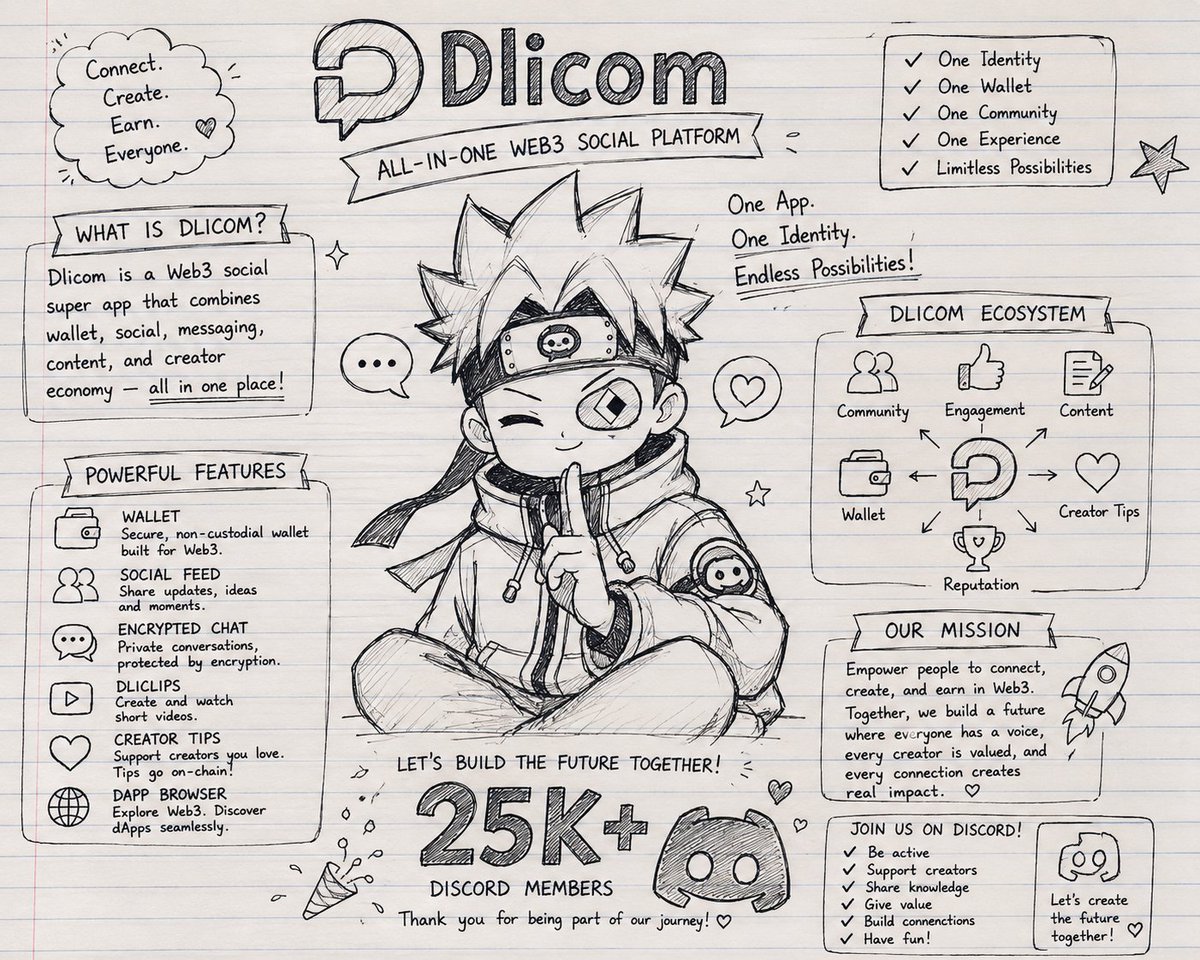 Connect.
Create.
Earn.
Everyone.
Dlicom
ALL-IN-ONE WEB3 SOCIAL PLATFORM
One Identity
One Wallet
One Community
One Experience
Limitless Possibilities
One App.
One Identity.
Endless Possibilities!
WHAT IS DLICOM?
Dlicom is a Web3 social
super app that combines
wallet, social, messaging,
content, and creator
economy — all in one place!
POWERFUL FEATURES
WALLET
Secure, non-custodial wallet
built for Web3.
SOCIAL FEED
Share updates, ideas
and moments.
ENCRYPTED CHAT
Private conversations,
protected by encryption.
DLICLIPS
Create and watch
short videos.
CREATOR TIPS
Support creators you love.
Tips go on-chain!
DAPP BROWSER
Explore Web3. Discover
dApps seamlessly.
DLICOM ECOSYSTEM
Community
Engagement
Content
Wallet
Creator Tips
Reputation
OUR MISSION
Empower people to connect,
create, and earn in Web3.
Together, we build a future
where everyone has a voice,
every creator is valued, and
every connection creates
real impact.
LET'S BUILD THE FUTURE TOGETHER!
25K+
DISCORD MEMBERS
Thank you for being part of our journey!
JOIN US ON DISCORD!
Be active
Support creators
Share knowledge
Give value
Build connenctions
Have fun!
Let's create
the future
together!